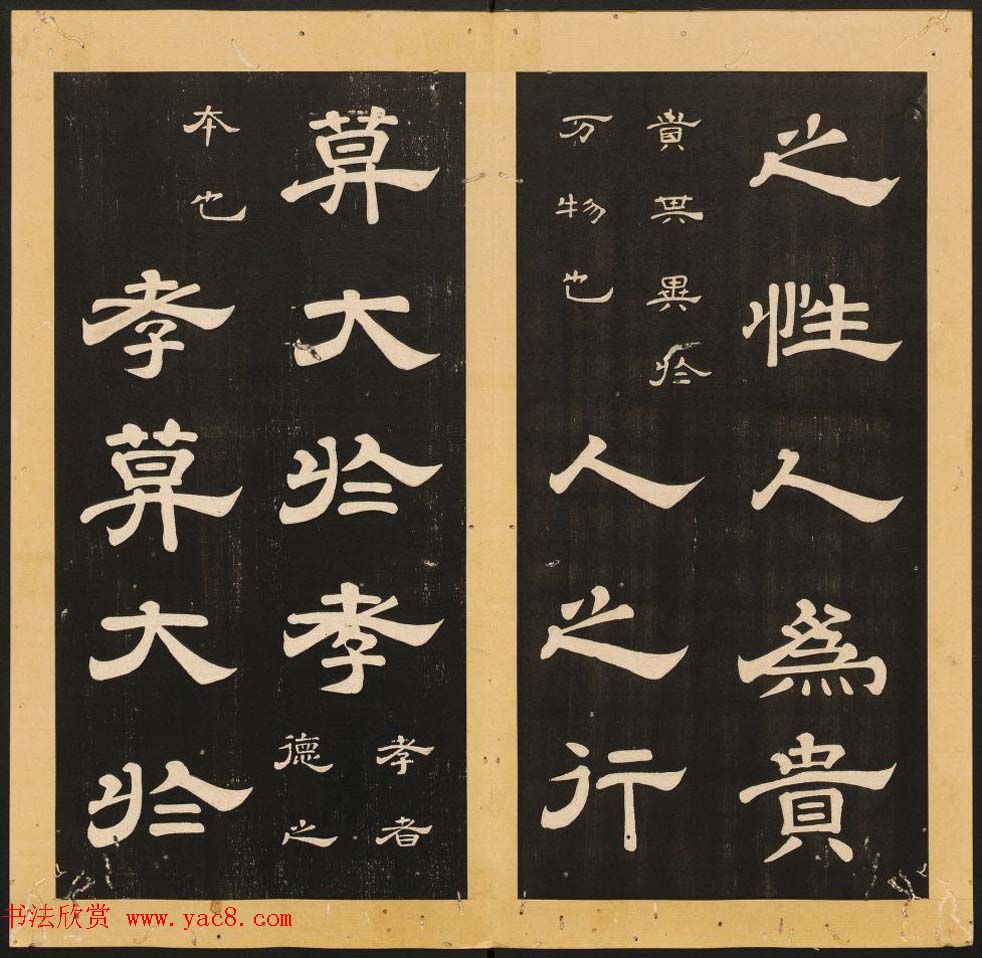 之性人為貴
貴其異於
万物也
人之行
莫大於孝
孝者
德之
本也
孝莫大於
书法欣赏 www.yac8.com